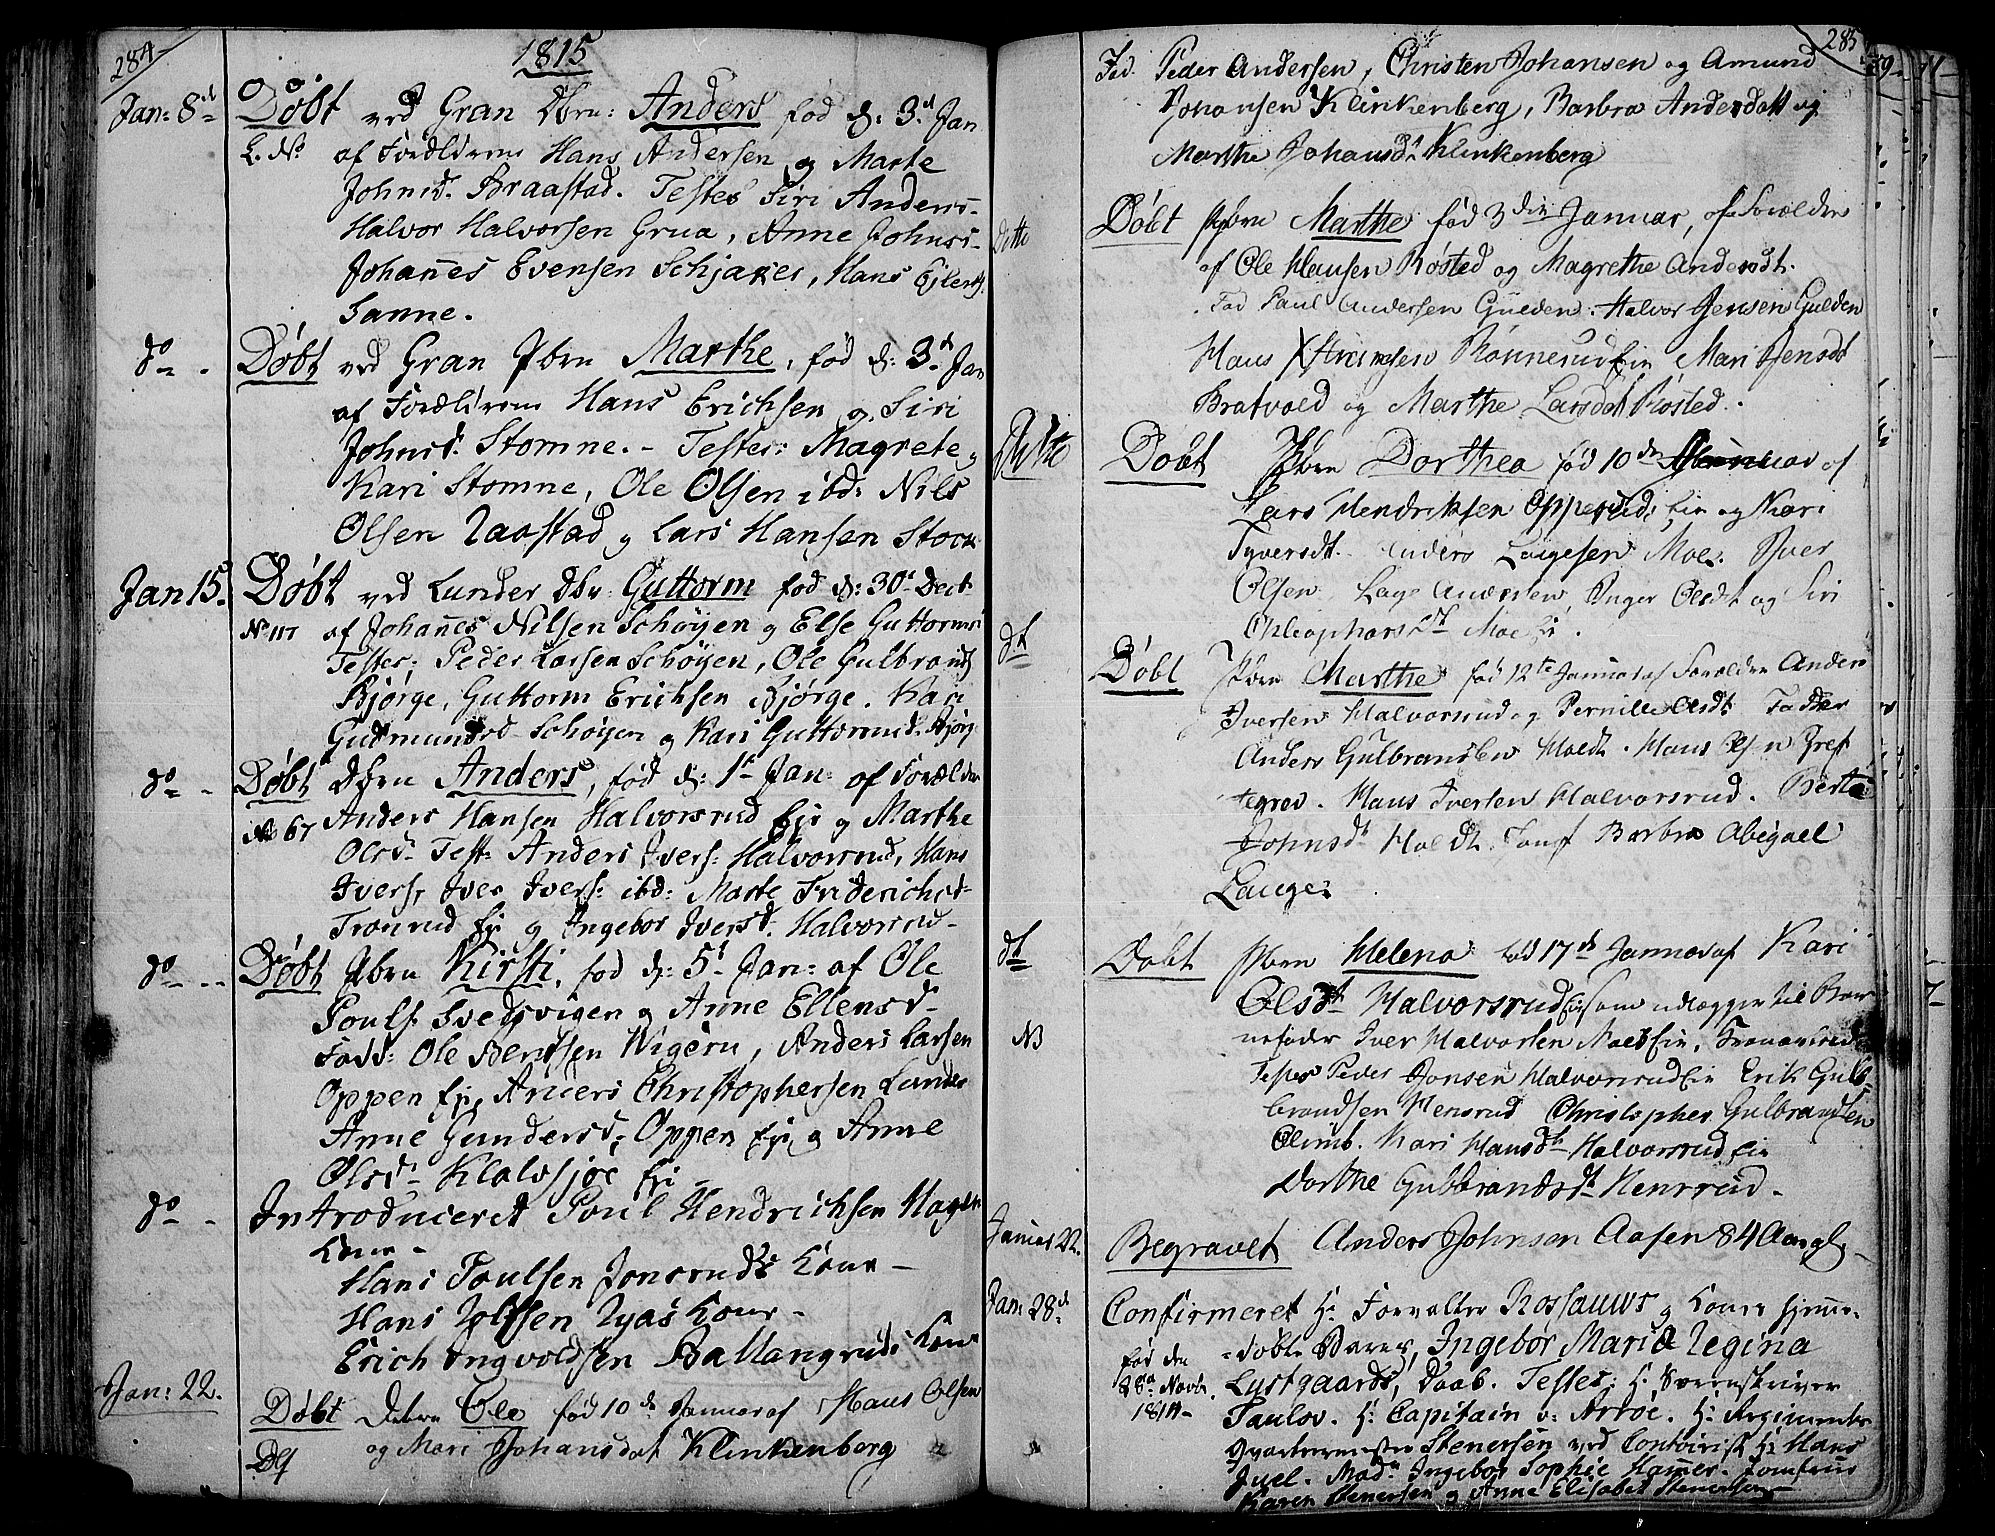 284
1815
Jan: 8d Døbt ved Gran Dbrn: Anders fød d: 3d Jan
af Forældrene Hans Andersen og Marte
Johnsd. Braastad. Testes Siri Anders-
Halvor Halvorsen Grua, Anne Johnsd-
Johanes Evensen Schjaker, Hans Ejlerts
Sanne.
do - Døbt ved Gran Pbrn Marthe, fød d: 3d Jan
af Forældrene Hans Erichsen og Siri
Johnsd. Stomne. - Testes: Magrete og
Kari Stomne, Ole Olsen ibd: Nils
Olsen Raastad og Lars Hansen Stock
Jan 15. Døbt ved Lunder Dbr: Guttorm fød d: 30d Decb
No 117 af Johanes Nilsen Schøyen og Else Guttormsd
Testes: Peder Larsen Schøyen, Ole Gulbrands
Bjørge, Guttorm Erichsen Bjørge. Kari
Gudmundsd Schøyen og Kari Guttormsd. Bjørg
do - Døbt Dbrn Anders, fød d: 1t Jan: af Forældre
No 67 Anders Hansen Halvorsrud Eje og Marthe
Olsd. Test: Anders Ivers: Halvorsrud, Hans
Ivers, Iver Ivers: ibd: Marte Friderichsd-
Tronrud Eje og Ingebor Iversd. Halvorsrud-
do - Døbt Pbrn Kirsti, fød d: 5t Jan: af Ole
Pouls: Svedsvigen og Anne Ellensd-
Fadd: Ole Bentsen Wigern, Anders Larsen
Oppen Eje, Anders Christophersen Lunder
Anne Gundersd: Oppen Eje og Anne
Olsd- Klævsjøe Eje -
do - Introduceret Poul Hendrichsen Hagens
Kone -
Hans Poulsen Jonsruds Kone -
Hans Olsen Ryas Kone -
Erich Ingvoldsen Ballangruds Kone
Jan: 22. Døbt Ole fød 10de Januar af Hans Olsen
og Mari Johansdat Klinkenberg
285
Fad. Peder Andersen, Christen Johansen og Amund
Johansen Klinkenberg, Barbra Andersdatt og
Marthe Johansdt Klinkenberg
Ditto Døbt Pbrn Marthe fød 3die Januar, af Forældre
af Ole Hansen Røsted og Magrethe Andersdt.
Fad Paul Andersen Gulden. Halvor Jensen Gulden
Hans Rønnerudein Mari Jensdt
Bratvold og Marthe Larsdat Røsted.
Ditto Døbt Pbrn Dorthea fød 10de Januar af
Lars Hendriksen Opperud, Ein og Kari
Syversdt. Anders Laigesen Moe. Iver
Olsen, Lage Andersen, Inger Olsdt og Siri
Cleophasdt Moe Ei.
dt Døbt Pbrn Marthe fød 12te Januar af Forældre Anders
Iversen Halvorsrud og Pernille Olsdt Fadder
Anders Gulbrandsen Holdt. Hans Olsen Pref
tegrav. Hans Iversen Halvorsrud. Berte
Johnsdt Holdt. Jomf Barbra Abigael
Lange.
dt Døbt Pbrn Helena fød 17de Januar af Kari
Olsdt Halvorsrudein som udlægger til Bar
NB nefader Iver Halvorsen Moe Ein,
Testes Peder Jonsen Halvorsrudein Erik Gul-
brandsen Hensrud Christopher Gulbrandsen
Olimb. Kari Hansdt Halvorsrud Ein
Dorthe Gulbrandsdt Hensrud -
Januar 22. Begravet Anders Johnsen Aasen 84 Aar gl.
Jan: 28d Confirmeret Hr Forvalter Rossauws og Kones hjemme-
døbte Barn, Ingebor Maria Regina
fød den Lystgaards Daab. Testes: Hr Sorenskriver
28d Novbr. Paulov. Hr Capitain v: Arroe. Hr Regiments
1814- Qvarteermester Stenersen ved Contoirist Hr Hans
Juel. Mad: Ingebor Sophie Hamer. Jomfrue
Karen Stenersen og Anne Elisabet Stenersen